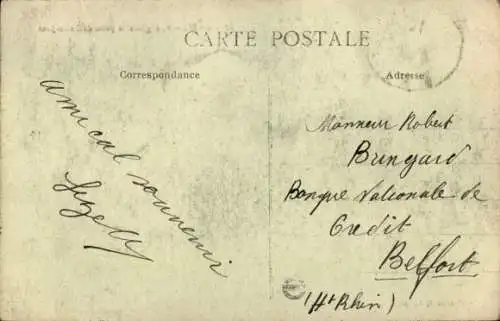 CARTE POSTALE
Correspondance
Adresse
amical souvenir
Monsieur Robert
Bungard
Banque Nationale de
Credit
Belfort
(Ht Rhin)